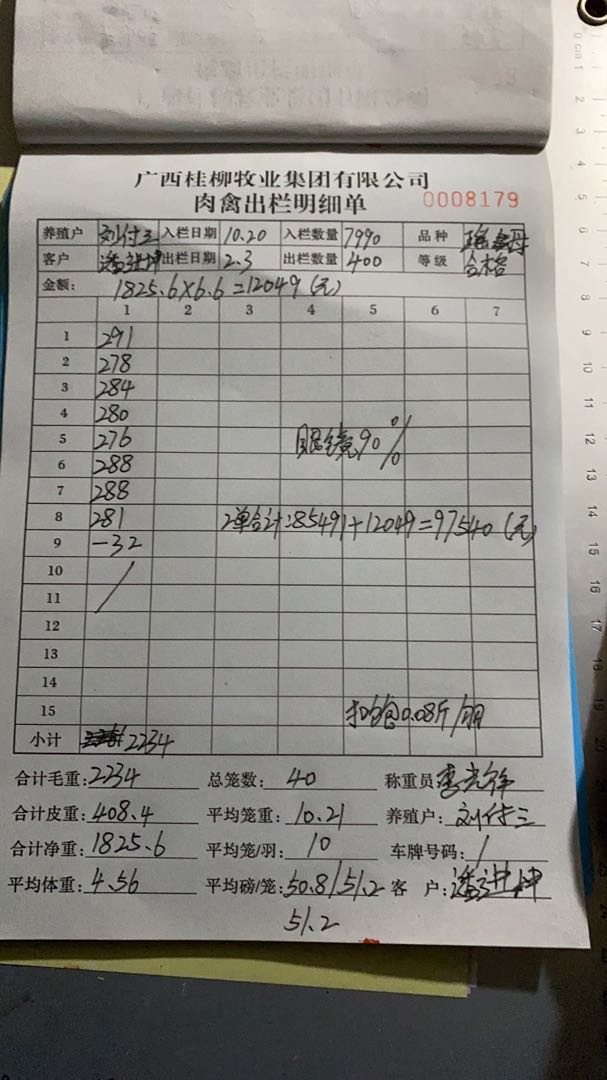 广西桂柳牧业集团有限公司
肉禽出栏明细单 0008179
养殖户 刘付三 入栏日期 10.20 入栏数量 7990 品种
客户 潘进坤 出栏日期 2.3 出栏数量 400 等级 合格
金额: 1825.6×6.6=12049(元)
1 2 3 4 5 6 7
1 291
2 278
3 284
4 280
5 276 眼镜90%
6 288
7 288
8 281 2单合计:85491+12049=97540(元)
9 -32
10
11
12
13
14
15 扣饱0.08斤/羽
小计 2234
合计毛重:2234 总笼数:40 称重员
合计皮重:408.4 平均笼重:10.21 养殖户:刘付三
合计净重:1825.6 平均笼/羽:10 车牌号码:/
平均体重:4.56 平均磅/笼:50.8/51.2 客户:潘进坤
51.2
0cm 1 2 3 4 5 6 7 8 9 10 11 12 13 14 15 16 17 18 19